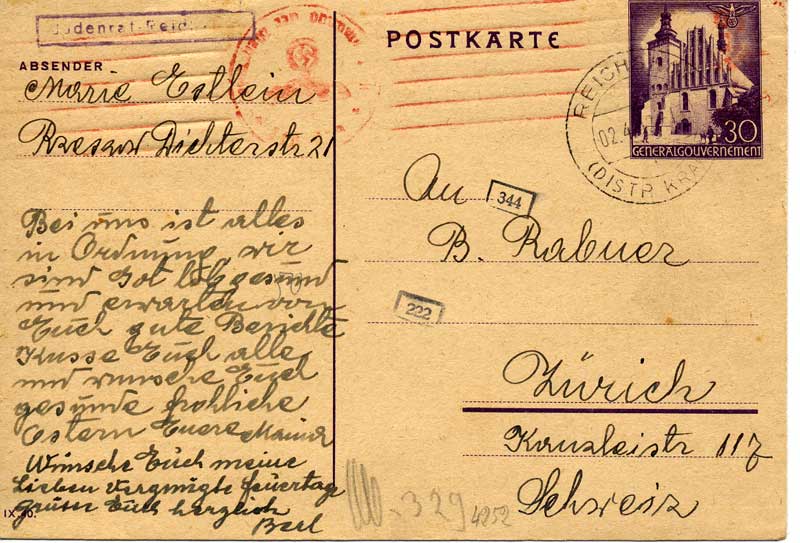 Judenrat-Reich
ABSENDER
Marie Estlein
Rzeszow Dichterstr 21
Bei uns ist alles
in Ordnung, wir
sind Got lob gesund
und erwarten von
Euch gute Berichte
Kusse Euch alle
und wunsche Euch
gesunde frohliche
Ostern Euere
Wunsche Euch meine
Lieben vergnugte feuertage
Gruss Euch herzlich
Berl
IX.40.
POSTKARTE
REICH
02.4
(DISTR. KRA
30
GENERALGOUVERNEMENT
An
344
B. Rabner
222
Zürich
Kanzleistr 117
Schweiz
329
4252